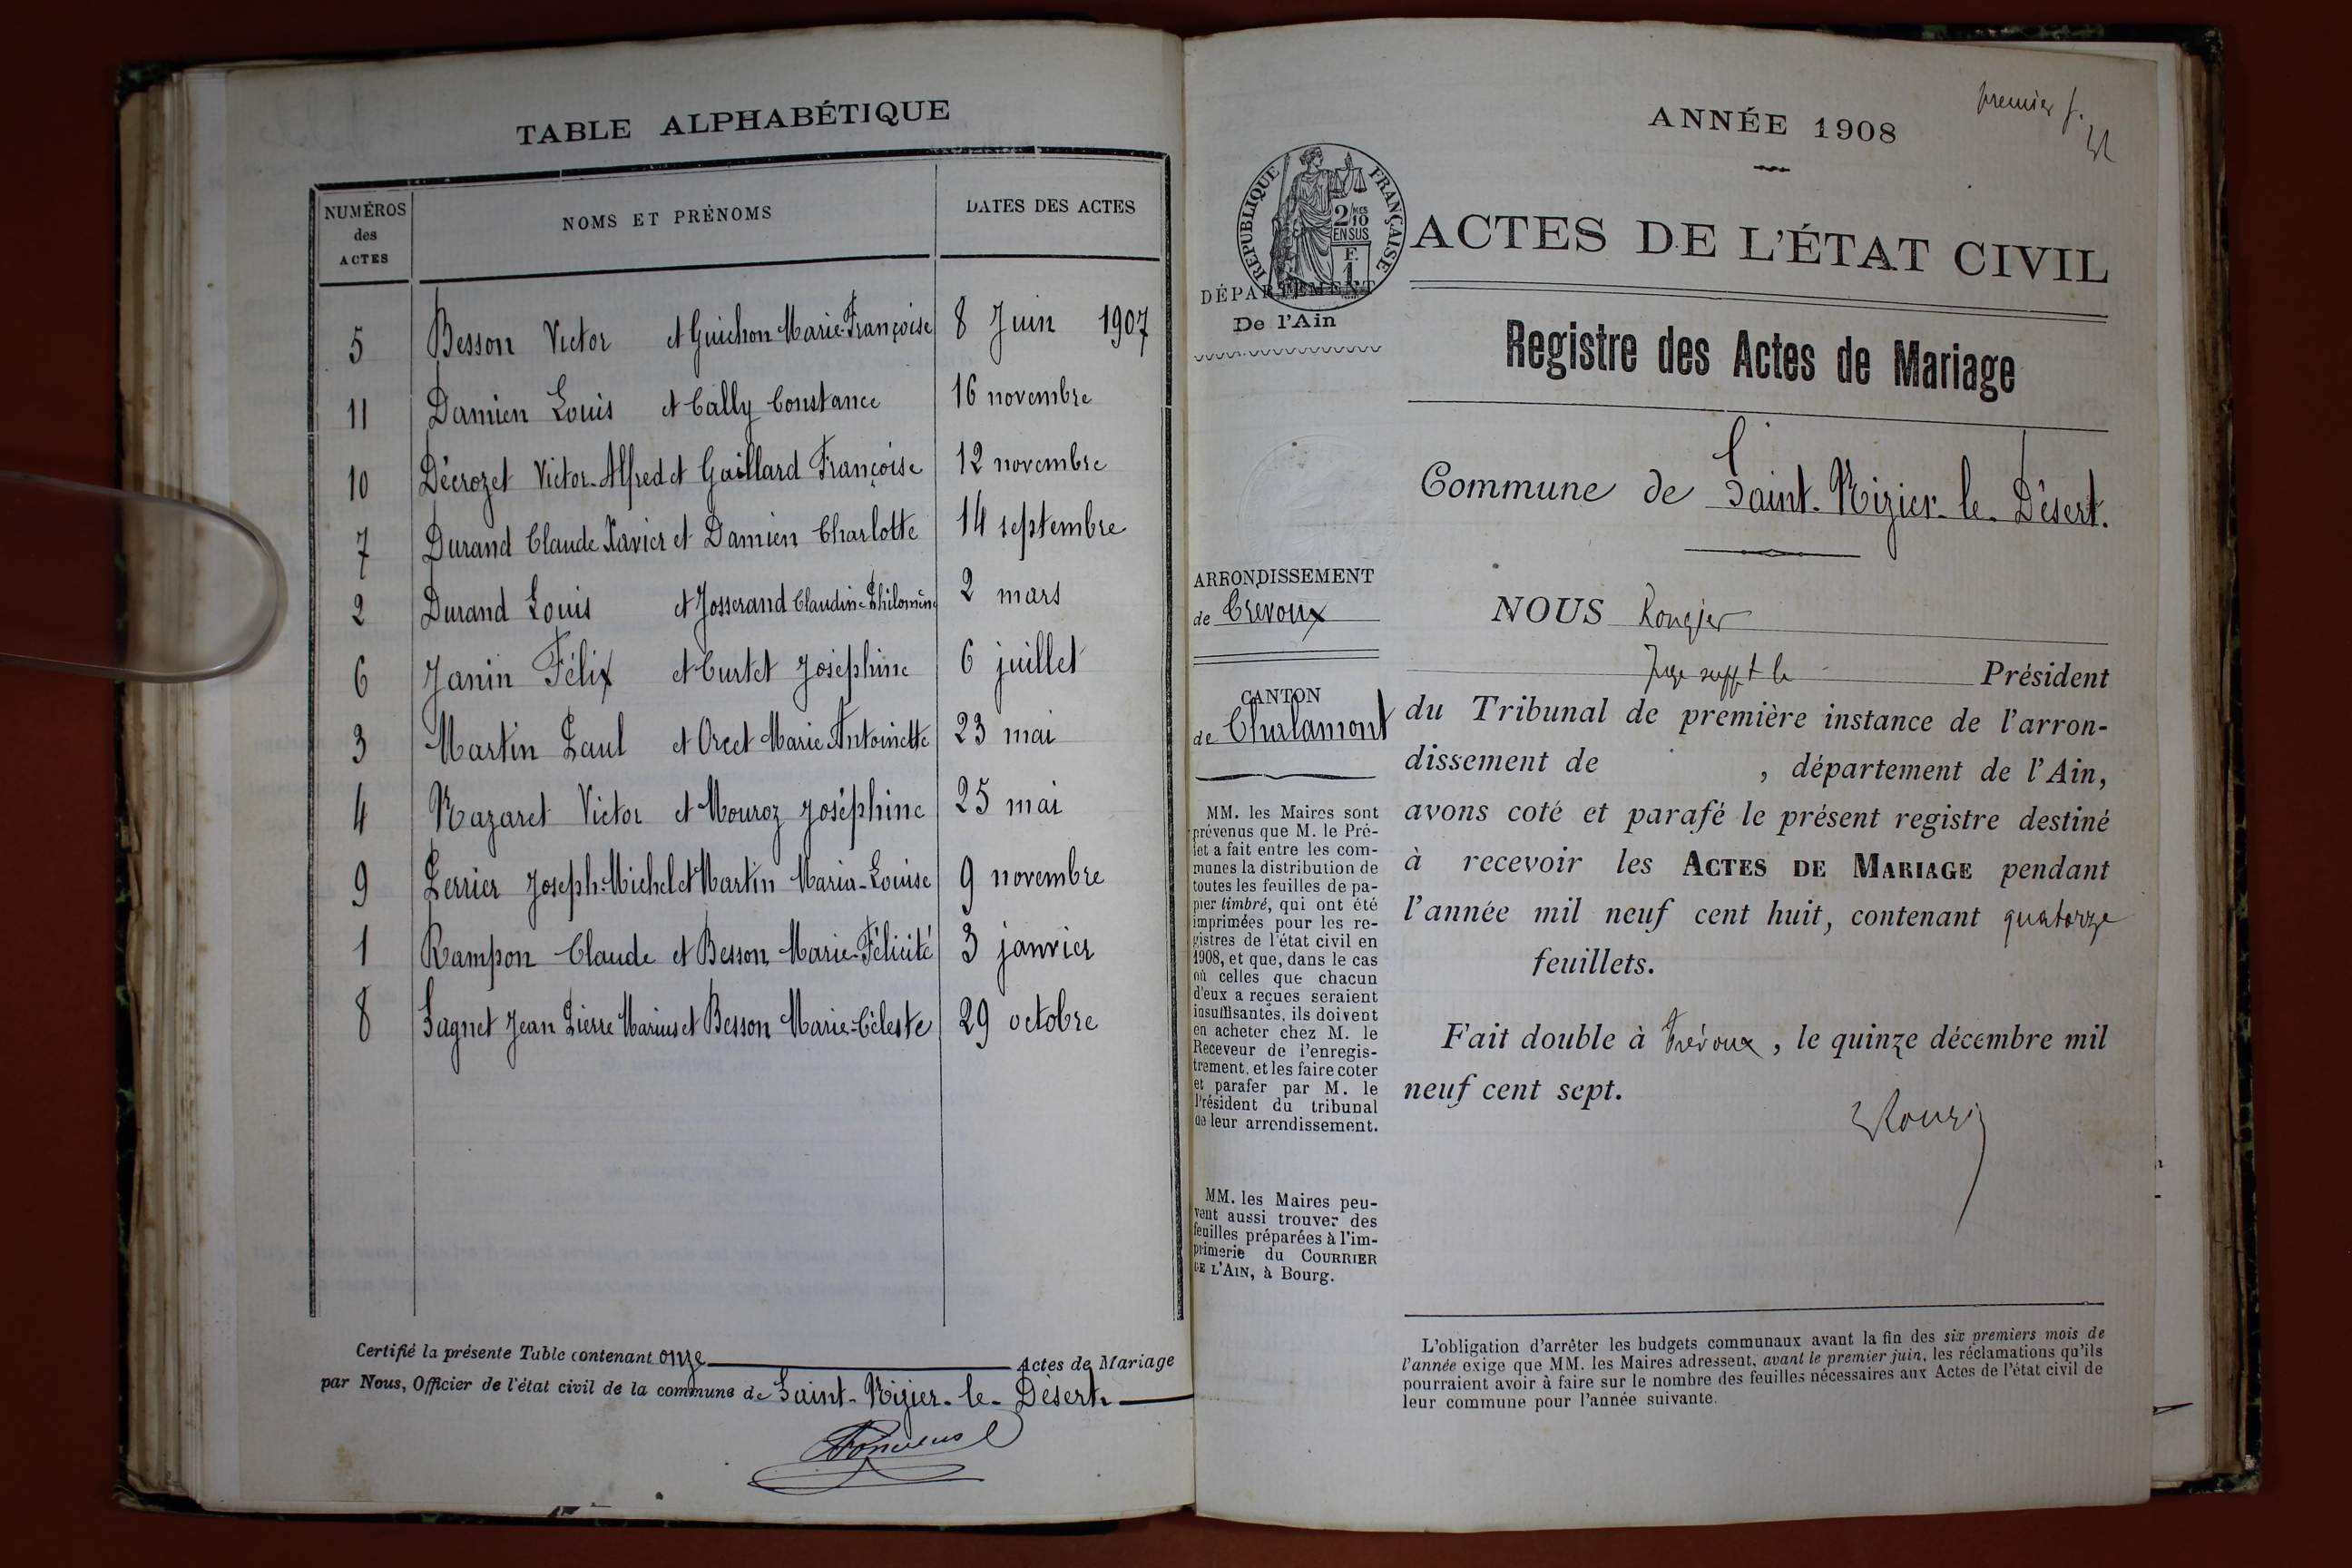 TABLE ALPHABÉTIQUE
NUMÉROS des ACTES
NOMS ET PRÉNOMS
DATES DES ACTES
5 Besson Victor et Guichon Marie-Françoise 8 Juin 1907
11 Damien Louis et Cally Constance 16 novembre
10 Décrozet Victor-Alfred et Gaillard Françoise 12 novembre
7 Durand Claude Xavier et Damien Charlotte 14 septembre
2 Durand Louis et Josserand Claudine-Philomène 2 mars
6 Janin Félix et Curtet Joséphine 6 juillet
3 Martin Paul et Orcet Marie-Antoinette 23 mai
4 Nazaret Victor et Mouroz Joséphine 25 mai
9 Perrier Joseph-Michel et Martin Maria-Louise 9 novembre
1 Rampon Claude et Besson Marie-Félicité 3 janvier
8 Sagnet Jean Pierre Marius et Besson Marie-Céleste 29 octobre
Certifié la présente Table contenant onze Actes de Mariage
par Nous, Officier de l'état civil de la commune de Saint-Nizier-le-Désert
premier f.
ANNÉE 1908
RÉPUBLIQUE FRANÇAISE
2/10 MES
EN SUS
F.
1
ACTES DE L'ÉTAT CIVIL
DÉPARTEMENT
De l'Ain
Registre des Actes de Mariage
Commune de Saint-Nizier-le-Désert.
ARRONDISSEMENT
de Trévoux
CANTON
de Chalamont
MM. les Maires sont
prévenus que M. le Pré-
fet a fait entre les com-
munes la distribution de
toutes les feuilles de pa-
pier timbré, qui ont été
imprimées pour les re-
gistres de l'état civil en
1908, et que, dans le cas
où celles que chacun
d'eux a reçues seraient
insuffisantes, ils doivent
en acheter chez M. le
Receveur de l'enregis-
trement, et les faire coter
et parafer par M. le
Président du tribunal
de leur arrondissement.
MM. les Maires peu-
vent aussi trouver des
feuilles préparées à l'im-
primerie du COURRIER
DE L'AIN, à Bourg.
NOUS Rougier
Juge suppt le Président
du Tribunal de première instance de l'arron-
dissement de , département de l'Ain,
avons coté et parafé le présent registre destiné
à recevoir les ACTES DE MARIAGE pendant
l'année mil neuf cent huit, contenant quatorze
feuillets.
Fait double à Trévoux, le quinze décembre mil
neuf cent sept.
L'obligation d'arrêter les budgets communaux avant la fin des six premiers mois de
l'année exige que MM. les Maires adressent, avant le premier juin, les réclamations qu'ils
pourraient avoir à faire sur le nombre des feuilles nécessaires aux Actes de l'état civil de
leur commune pour l'année suivante.